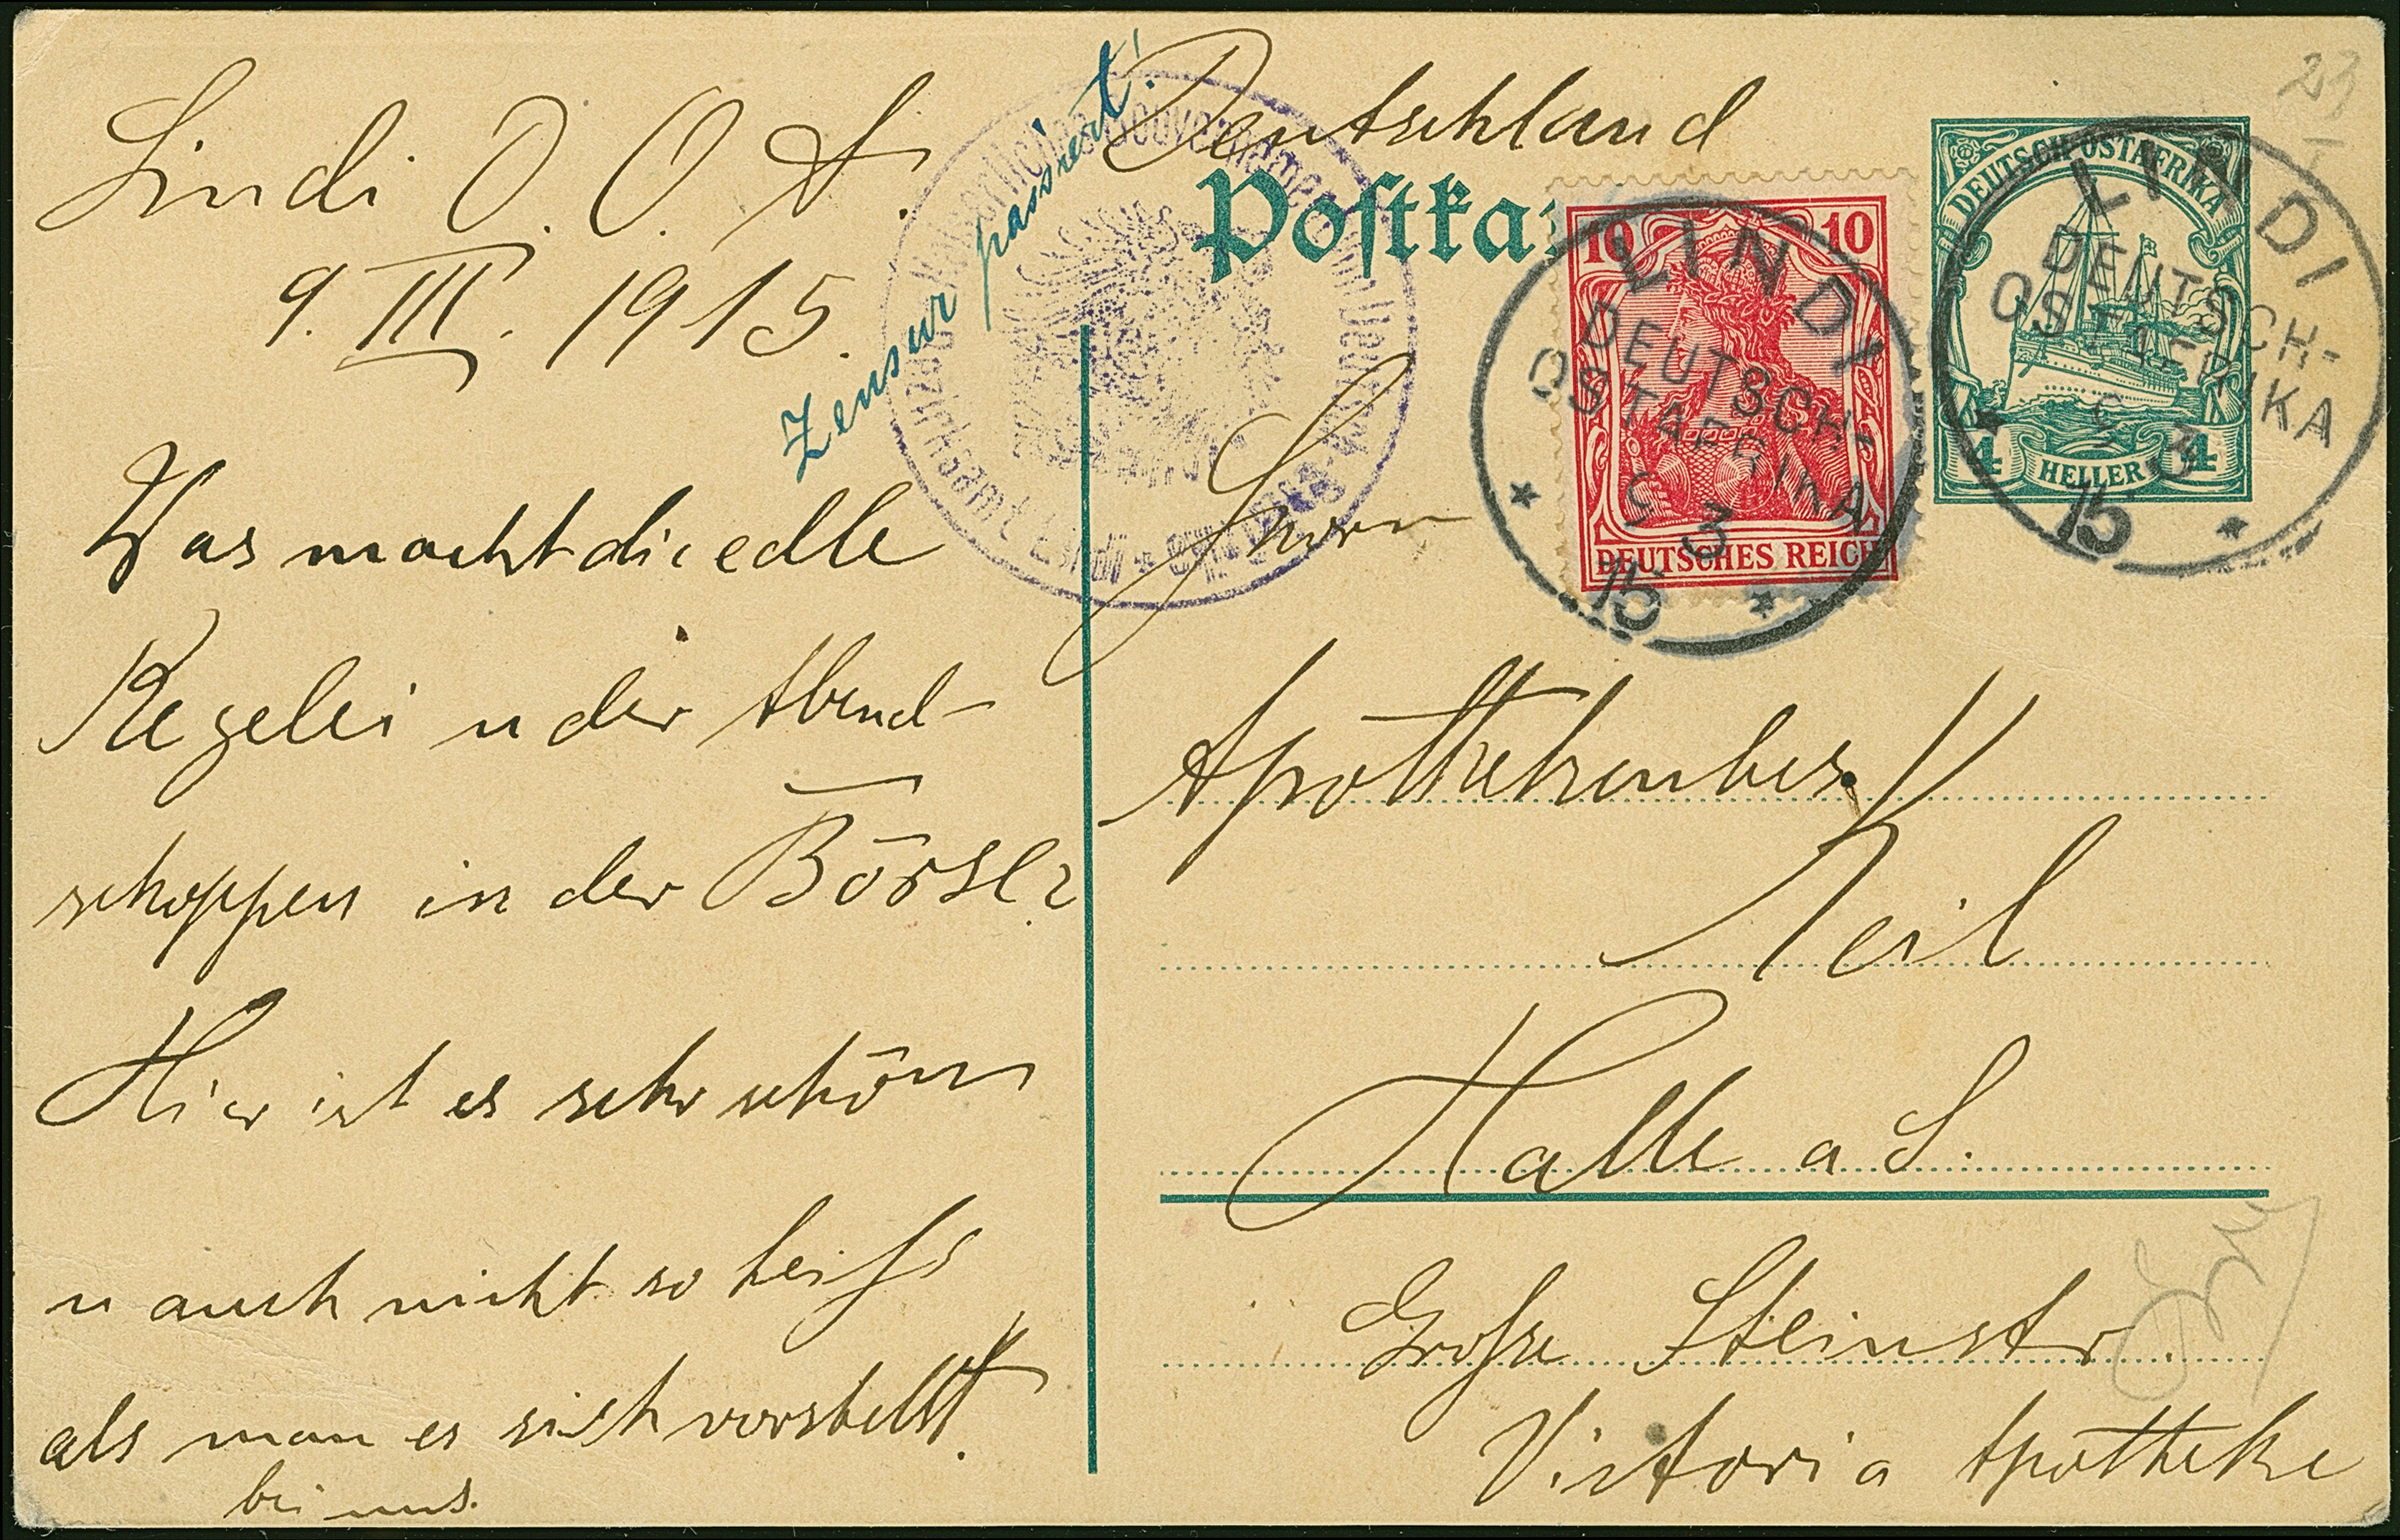 Lindi D. O. A.
9. III. 1915.
Zensur passiert!
Was macht die edle
Kegelei u der Abend-
schoppen in der Börse?
Hier ist es sehr schön
u auch nicht so heiß
als man es sich vorstellt
bei uns.
Deutschland
Postka
Kaiserliches Gouvernement von Deutsch-Ostafrika
Bezirksamt Lindi
10 10
DEUTSCHES REICH
LINDI
DEUTSCH-
OSTAFRIKA
9 3
15
DEUTSCH-OSTAFRIKA
4 HELLER 4
LINDI
DEUTSCH-
OSTAFRIKA
9 3
15
23
Herrn
Apothekenbes.
Keil
Halle a S.
Große Steinstr.
Victoria Apotheke